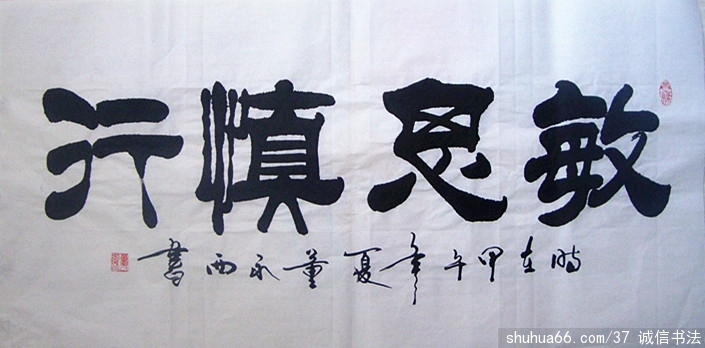 敏思慎行
時在甲午年夏董永西書
shuhua66.com/37 诚信书法